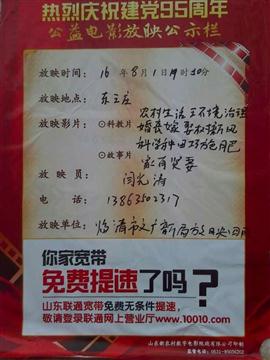 热烈庆祝建党95周年
公益电影放映公示栏
放映时间：16年8月1日19时30分
放映地点：东三庄
农村生活环境治理
放映影片：⊙科教片 婚丧嫁娶树新风
科学种田巧施肥
⊙故事片
放映员：闫光涛
电话：13863502317
放映单位：临清市文广新局
你家宽带
免费提速了吗？
山东联通宽带免费无条件提速，
敬请登录联通网上营业厅www.10010.com
山东新农村数字电影院线有限公司印制
监督电话：0531-85056202